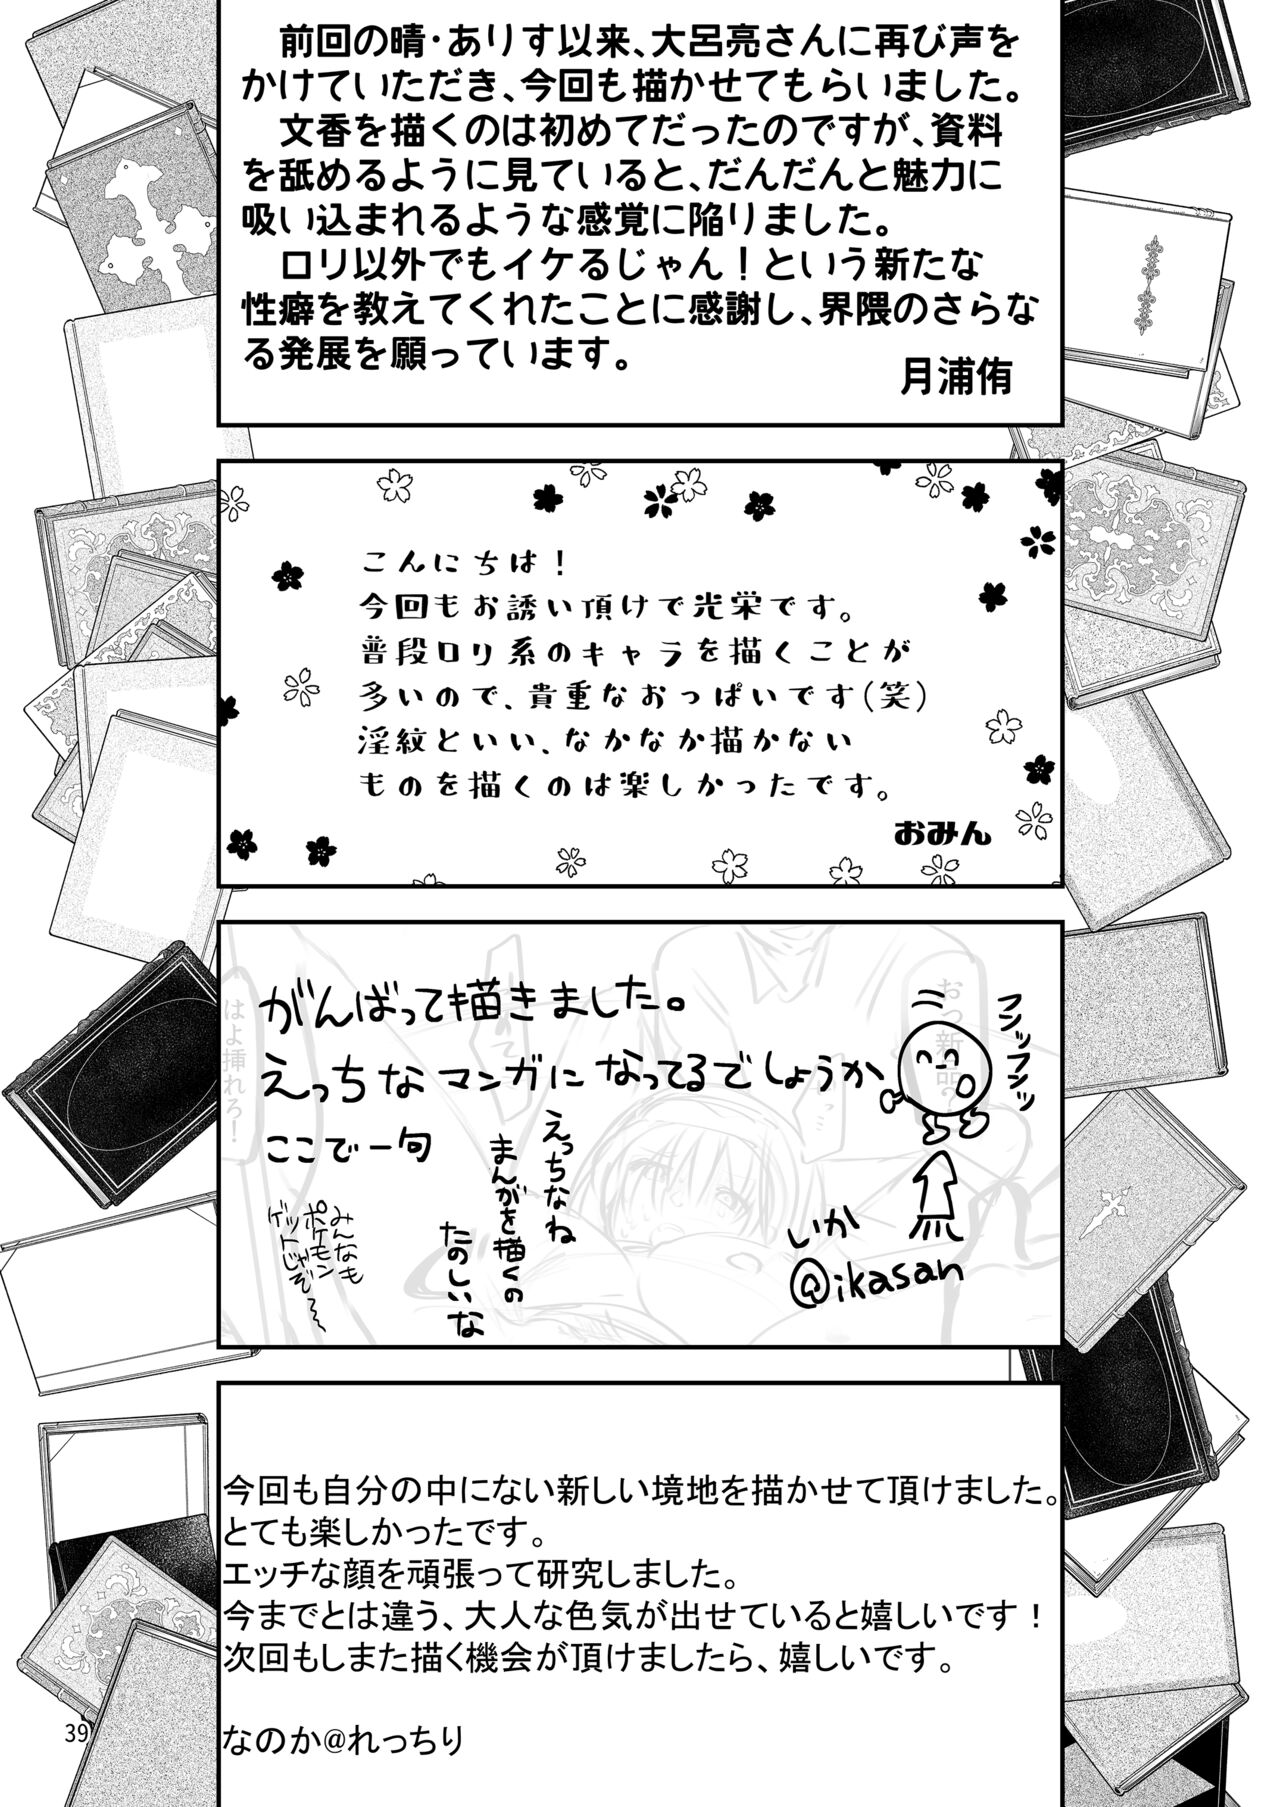 前回の晴・ありす以来、大呂亮さんに再び声を
かけていただき、今回も描かせてもらいました。
文香を描くのは初めてだったのですが、資料
を舐めるように見ていると、だんだんと魅力に
吸い込まれるような感覚に陥りました。
ロリ以外でもイケるじゃん！という新たな
性癖を教えてくれたことに感謝し、界隈のさらな
る発展を願っています。
月浦侑
こんにちは！
今回もお誘い頂けて光栄です。
普段ロリ系のキャラを描くことが
多いので、貴重なおっぱいです（笑）
淫紋といい、なかなか描かない
ものを描くのは楽しかったです。
おみん
がんばって描きました。
えっちなマンガになってるでしょうか
フンッフンッ
おっ新品？
はよ挿れろ！
ここで一句
えっちなね
まんがを描くの
たのしいな
みんなも
ポケモン
ゲットじゃぞ～
いか
@ikasan
今回も自分の中にない新しい境地を描かせて頂けました。
とても楽しかったです。
エッチな顔を頑張って研究しました。
今までとは違う、大人な色気が出せていると嬉しいです！
次回もしまた描く機会が頂けましたら、嬉しいです。
なのか@れっちり
39